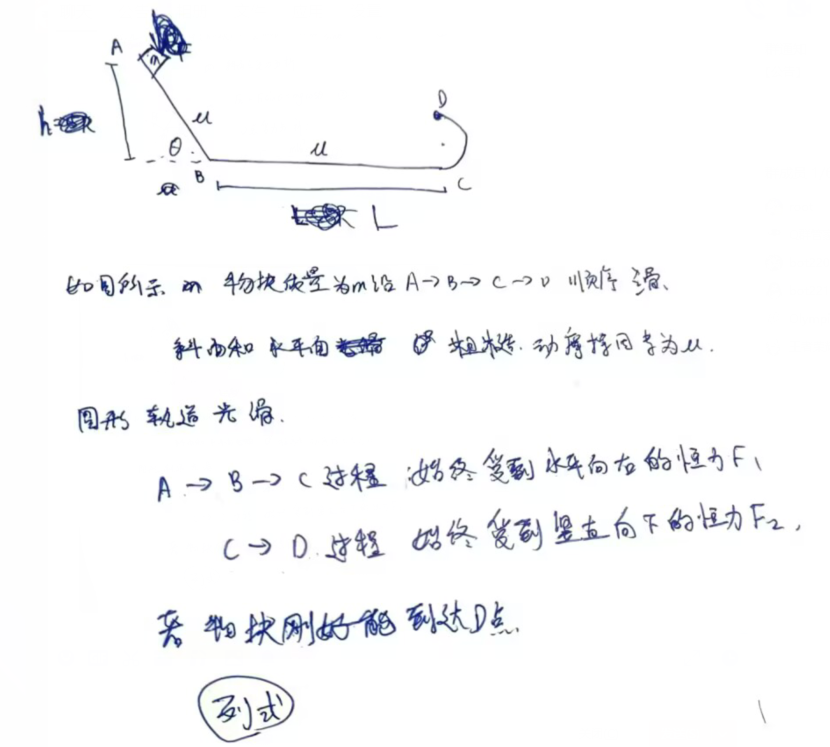 A
m
h
μ
θ
B
μ
D
C
L
如图所示 物块质量为m沿 A→B→C→D 顺序滑、
斜面和水平面 粗糙、动摩擦因素为μ.
圆形 轨道 光滑.
A→B→C过程 始终受到水平向右的恒力F₁
C→D过程 始终受到竖直向下的恒力F₂,
若物块刚好能到达D点.
列式